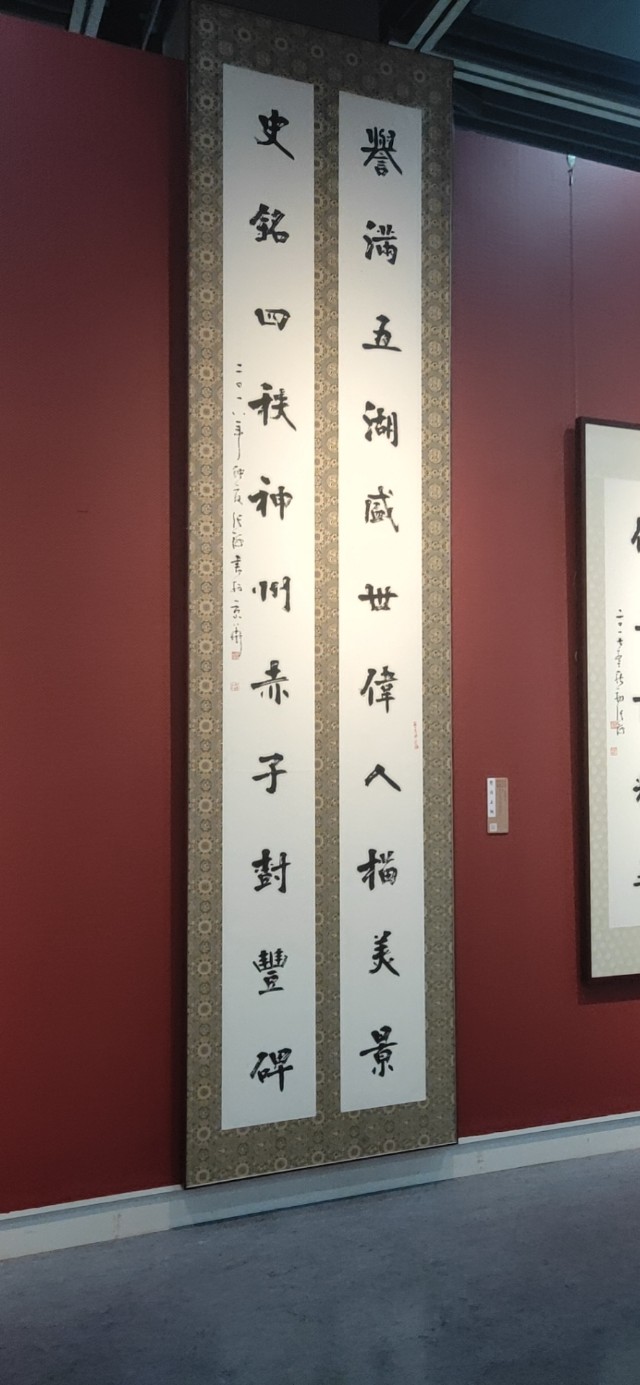 譽滿五湖盛世偉人描美景
史銘四秩神州赤子樹豐碑
二〇一八年仲夏
二〇一七年